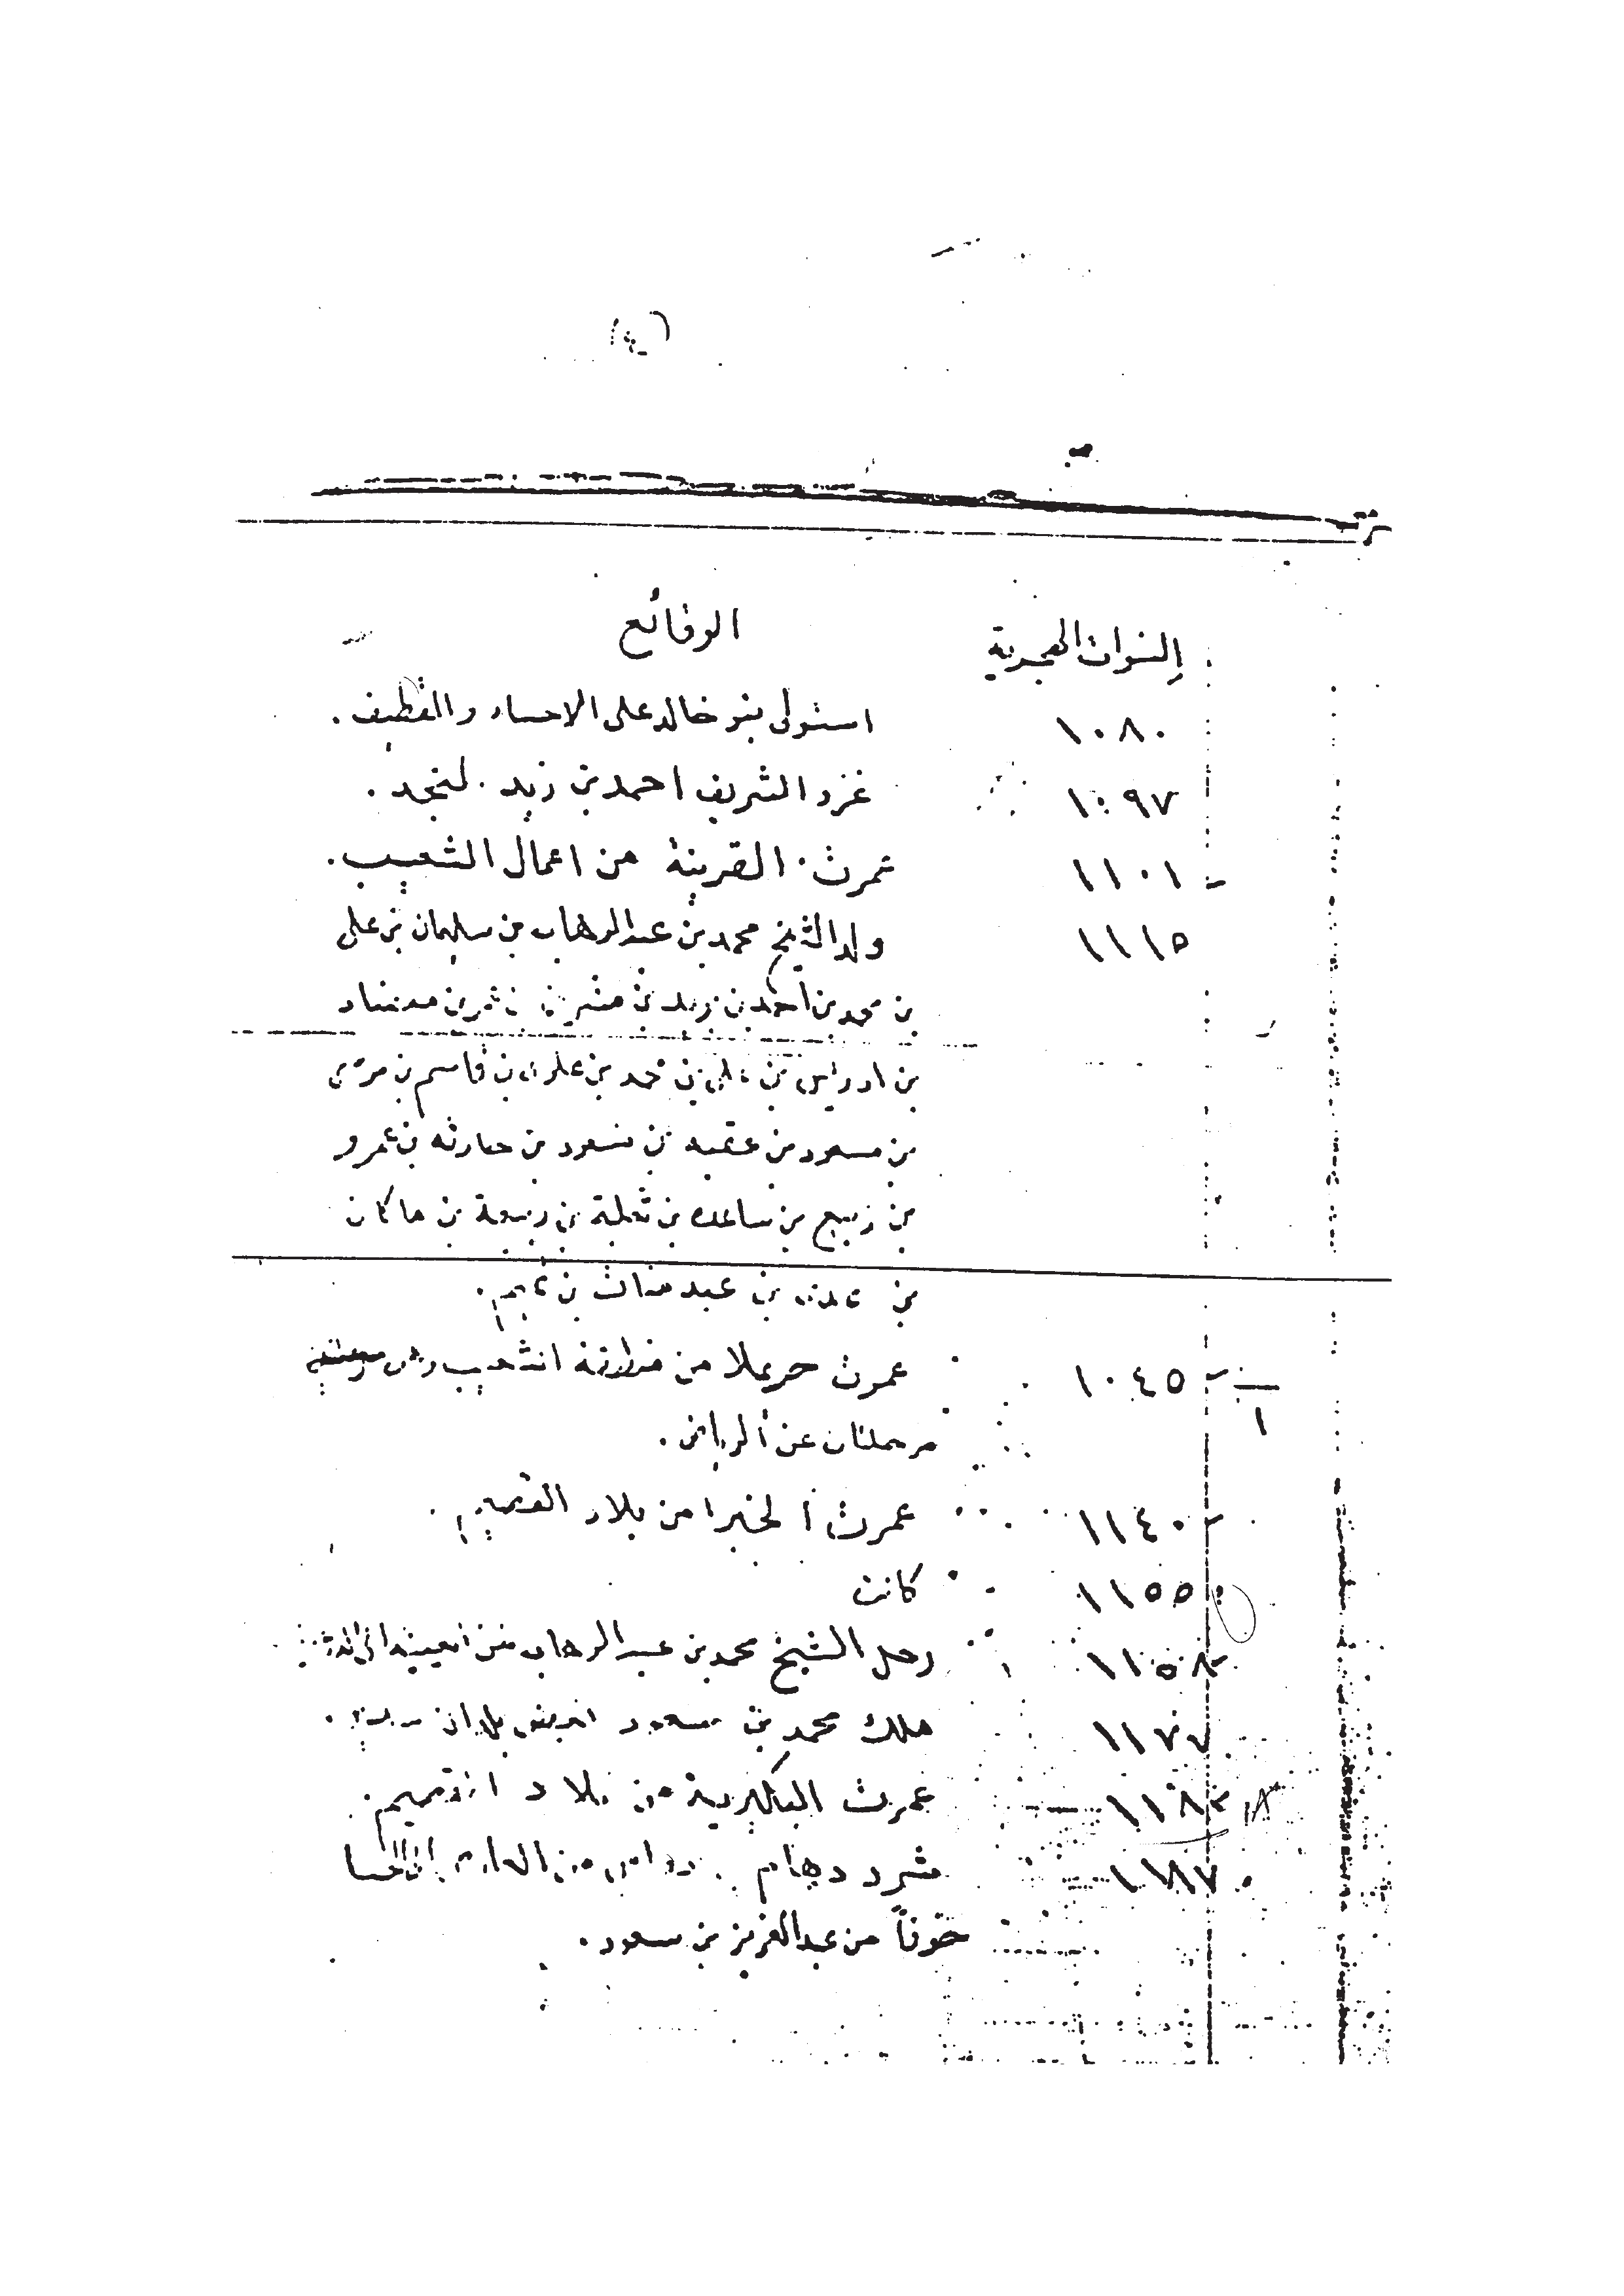 (٤)
السنوات الهجرية الوقائع
١٠٨٠ استولى بنو خالد على الاحساء والقطيف .
١٠٩٧ غزو الشريف احمد بن زيد لنجد .
١١٠١ عمرت القرينة من اعمال الشعيب .
١١١٥ ولد الشيخ محمد بن عبد الوهاب بن سليمان بن علي
بن محمد بن احمد بن بن
بن ادريس بن علي بن محمد بن علوي بن قاسم بن موسى
بن مسعود بن عقبه بن سعود بن حارثه بن عمرو
بن ربيع بن ساعده بن ثعلبة بن ربيعة بن ماكان
بن عدي بن عبد مناث بن تميم .
١٠٤٥ عمرت حريملا من الشعيب
مرحلتان عن الرياض .
١١٤٠ عمرت الخبرا من بلاد القصيم .
١١٥٥ كانت
١١٥٨ رحل الشيخ محمد بن عبد الوهاب من العيينه الى
١١٧٧ ملك محمد بن سعود
١١٨٢ عمرت البكيرية من بلاد القصيم .
١١٨٧ شرد دهام دواس من الى الحسا
خوفاً من عبد العزيز بن سعود .